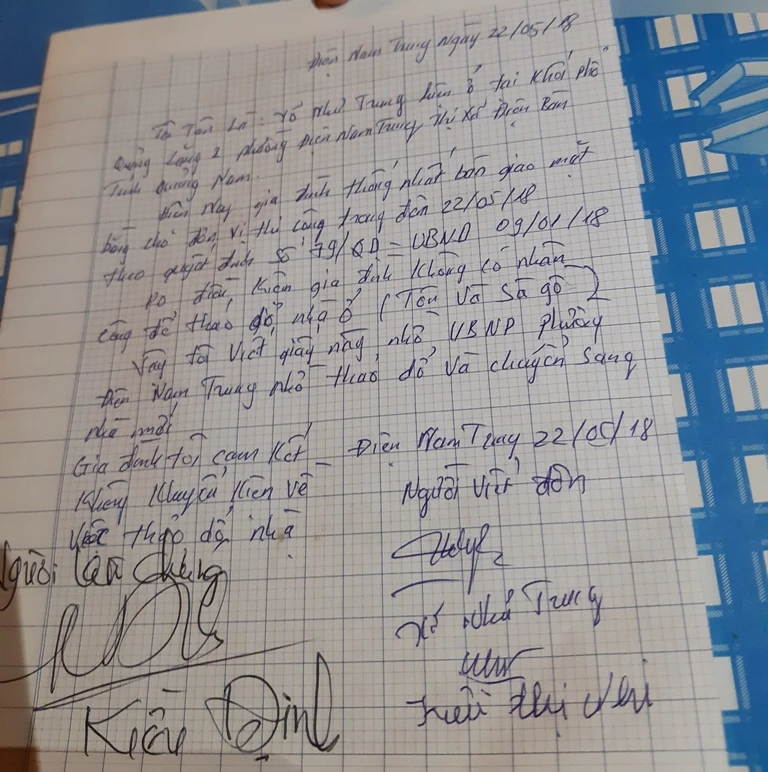 Điện Nam Trung Ngày 22/05/18
Tôi Tên Là: Nhứ Trung hiện ở tại Khối phố
Quảng Lăng 2 phường Điện Nam Trung thị xã Điện Bàn
Tỉnh Quảng Nam.
Hiện Nay gia đình thống nhất bàn giao mặt
bằng cho đơn vị thi công trong đến 22/05/18
theo quyết định Số 79/QD - UBND 09/01/18
Do điều Kiện gia đình Không Có nhân
công để tháo dỡ nhà ở (Tôn Và Sà gồ)
Vậy tôi Viết giấy này nhờ UBNP phường
Điện Nam Trung nhờ tháo dỡ Và chuyển Sang
nhà mới
Gia đình tôi cam Kết
Không Khuyếu Kiện Về
Việc tháo dỡ nhà
Điện Nam Trung 22/05/18
Người Viết đơn
Nhứ Trung
thị Nhi
Người làm chứng
Kiều Định